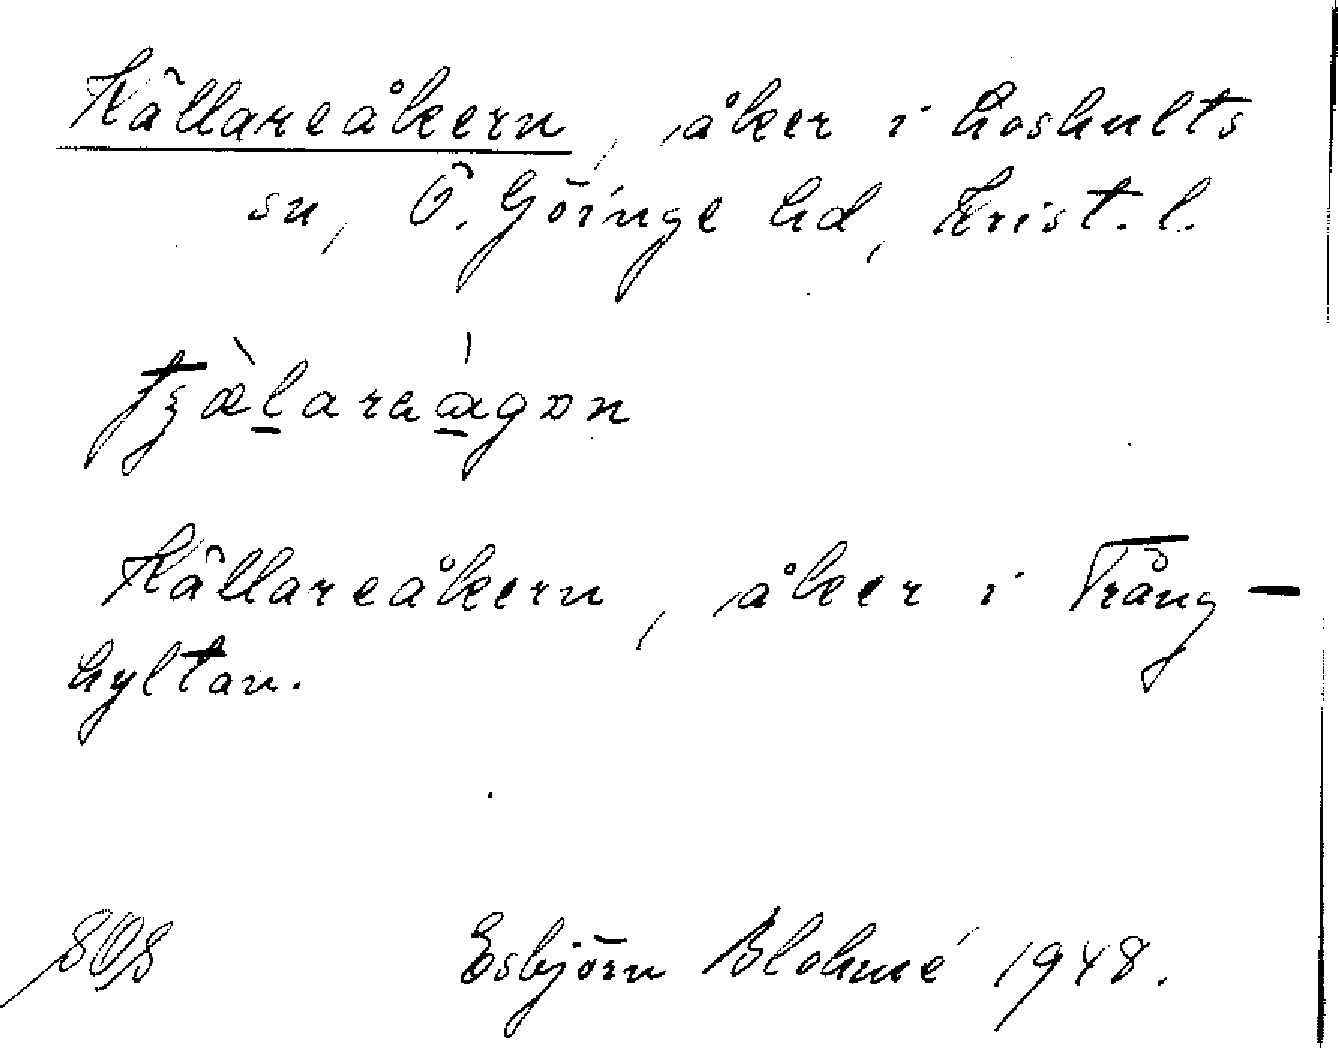 Källareåkern, åker i Loshults
sn, Ö. Göinge hd, Krist. l.
Källareåkern, åker i Trång-
hyltan.
Esbjörn Blohmé 1948.